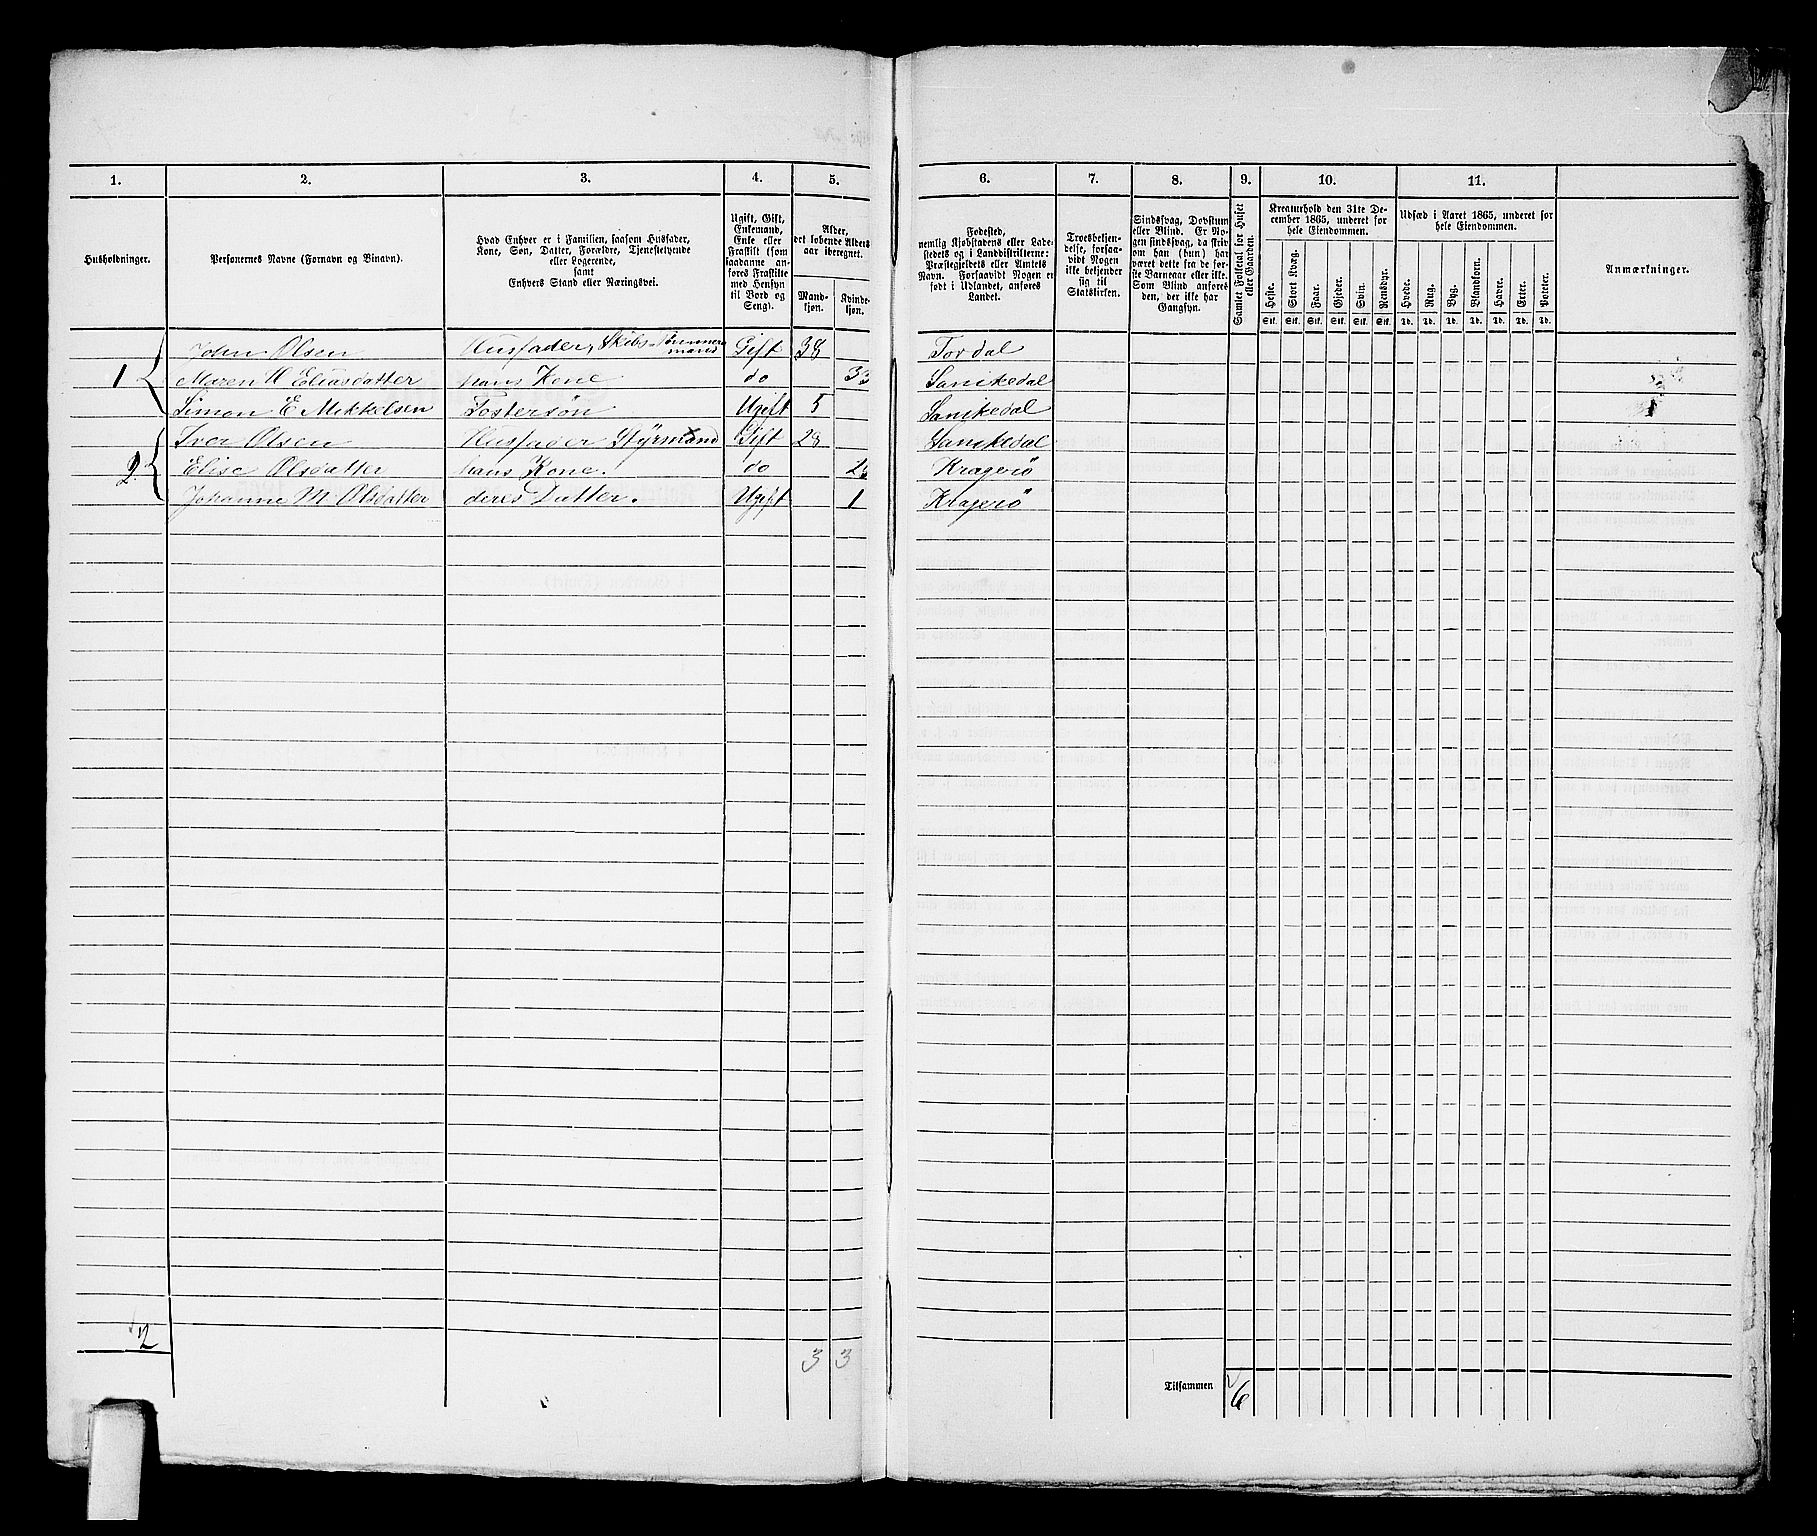 1. 2. 3. 4. 5. 6. 7. 8. 9. 10. 11.
Husholdninger.
Personernes Navne (Fornavn og Binavn).
Hvad Enhver er i Familien, saasom Husfader,
Kone, Søn, Datter, Forældre, Tjenestetyende
eller Logerende,
samt
Enhvers Stand eller Næringsvei.
Ugift, Gift,
Enkemand,
Enke eller
Fraskilt (som
saadanne an-
føres Fraskilte
med Hensyn
til Bord og
Seng).
Alder,
det løbende Alders-
aar iberegnet.
Mand-
kjøn.
Kvinde-
kjøn.
Fødested,
nemlig Kjøbstadens eller Lade-
stedets og i Landdistrikterne:
Præstegjeldets eller Annexets
Navn. Forsaavidt Nogen er
født i Udlandet, anføres
Landet.
Troesbekjen-
delse, forsaa-
vidt Nogen
ikke bekjender
sig til
Statskirken.
Sindssvag, Døvstum
eller Blind. Er No-
gen sindssvag, da skriv
om han (hun) har
været dette fra de før-
ste Barneaar eller ikke.
Som Blind anføres
den, der ikke har
Gangsyn.
Samlet Folketal for Huset
eller Gaarden.
Kreaturhold den 31te De-
cember 1865, underet for
hele Eiendommen.
Heste. Stort Kvæg. Faar. Gjeder. Svin. Rensdyr.
Stk. Stk. Stk. Stk. Stk. Stk.
Udsæd i Aaret 1865, underet for
hele Eiendommen.
Hvede. Rug. Byg. Blandkorn. Havre. Erter. Poteter.
Td. Td. Td. Td. Td. Td. Td.
Anmærkninger.
John Olsen Husfader, Skibs-Tømmermand Gift 38 Tordal
1 Maren H Eliasdatter hans Kone do 33 Sanikedal
Simon E Mikkelsen Fostersøn Ugift 5 Sanikedal
Iver Olsen Husfader Styrmand Gift 28 Sanikedal
2 Elise Olsdatter hans Kone. do Kragerö
Johanne M. Olsdatter deres Datter. Ugift 1 Kragerö
2
3 3
Tilsammen 6